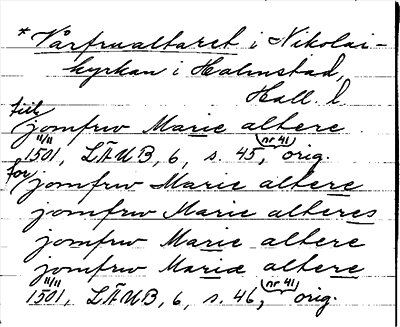 * Vårfrualtaret i Nikolai-
kyrkan i Halmstad,
Hall. l
till
jomfrw Marie altere
11/11 nr 41
1501, LÄUB, 6, s. 45, orig.
for jomfrw Marie altere
jomfrw Marie alteres
jomfrw Marie altere
jomfrw Mariæ altere
11/11 nr 41
1501, LÄUB, 6, s. 46, orig.